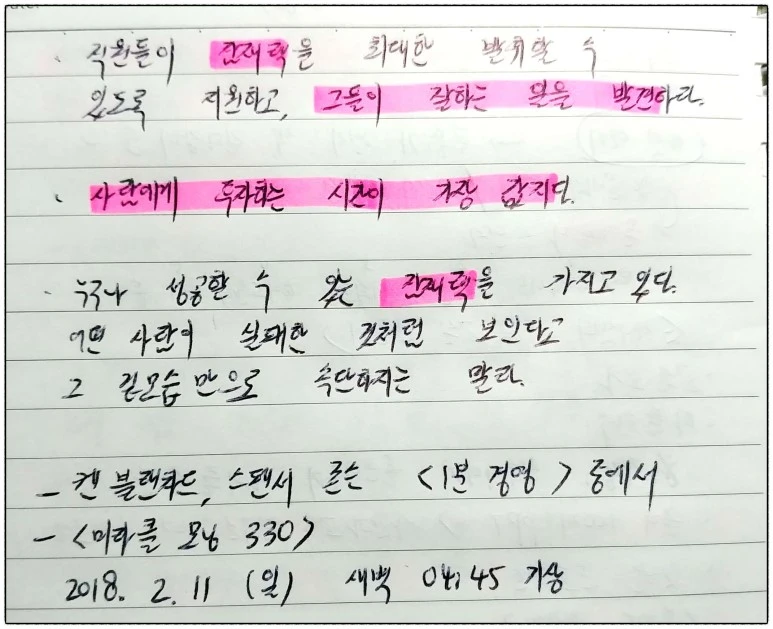 · 직원들이 잠재력을 최대한 발휘할 수
있도록 지원하고, 그들이 잘하는 일을 발견하라.
· 사람에게 투자하는 시간이 가장 값지다.
· 누구나 성공할 수 있는 잠재력을 가지고 있다.
어떤 사람이 실패한 것처럼 보인다고
그 겉모습만으로 속단하지는 말라.
- 켄 블랜차드, 스펜서 존슨 <1분 경영> 중에서
- <미라클 모닝 330>
2018. 2. 11 (일) 새벽 04:45 기상